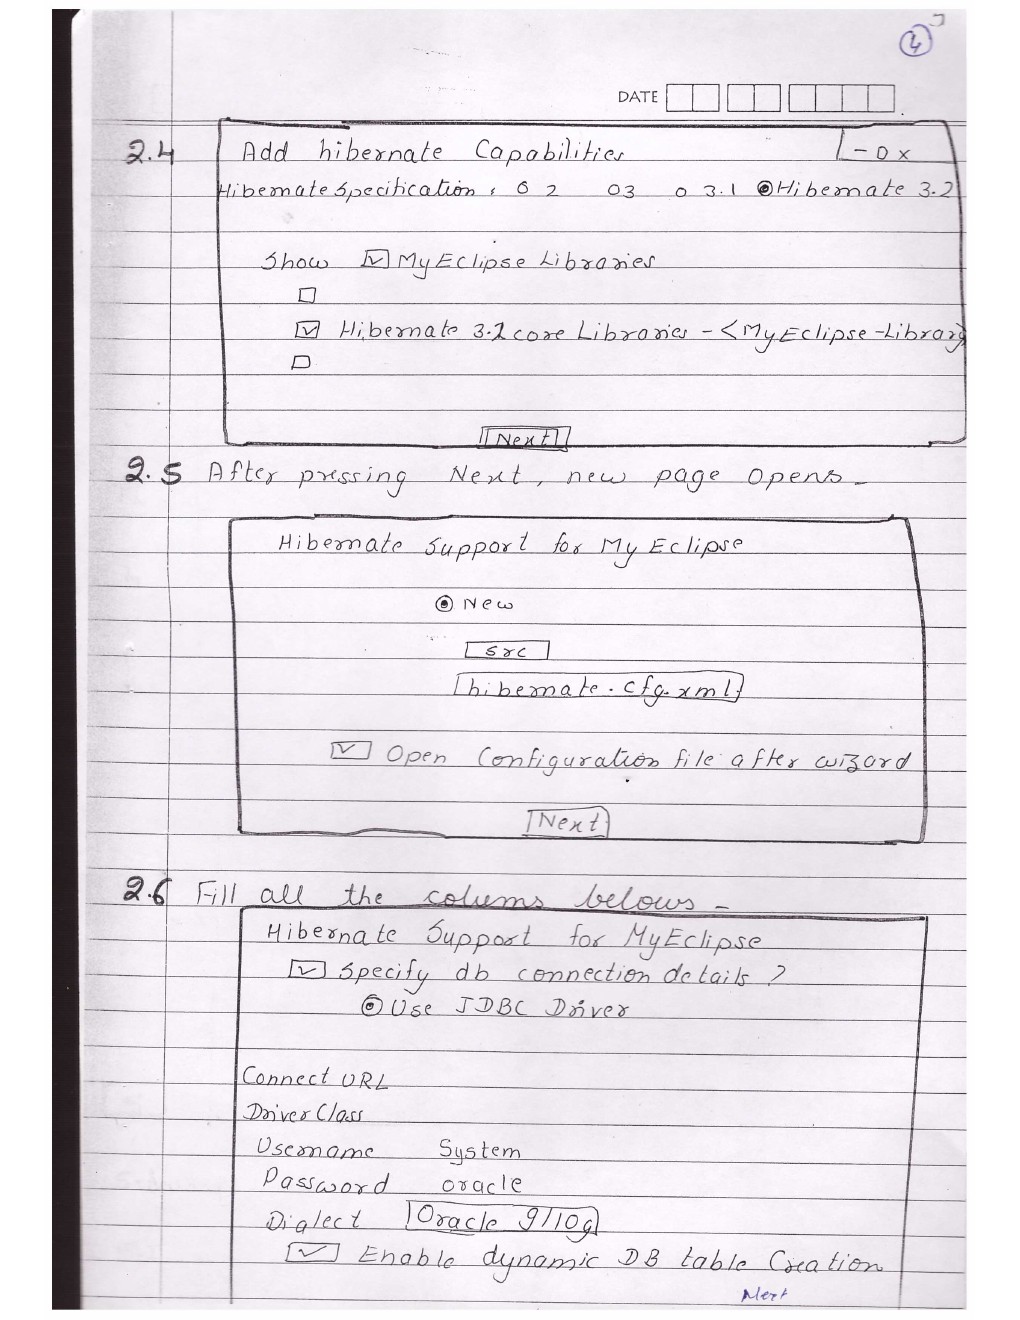 4
DATE
2.4 Add hibernate Capabilities - O x
Hibernate Specification : O 2 O3 O 3.1 Hibernate 3.2
Show MyEclipse Libraries
Hibernate 3.2 core Libraries - <MyEclipse-Library>
Next
2.5 After pressing Next, new page opens -
Hibernate Support for MyEclipse
New
src
hibernate.cfg.xml
Open Configuration file after wizard
Next
2.6 Fill all the colums belows -
Hibernate Support for MyEclipse
Specify db connection details ?
Use JDBC Driver
Connect URL
Driver Class
Username System
Password oracle
Dialect Oracle 9/10g
Enable dynamic DB table Creation
Next